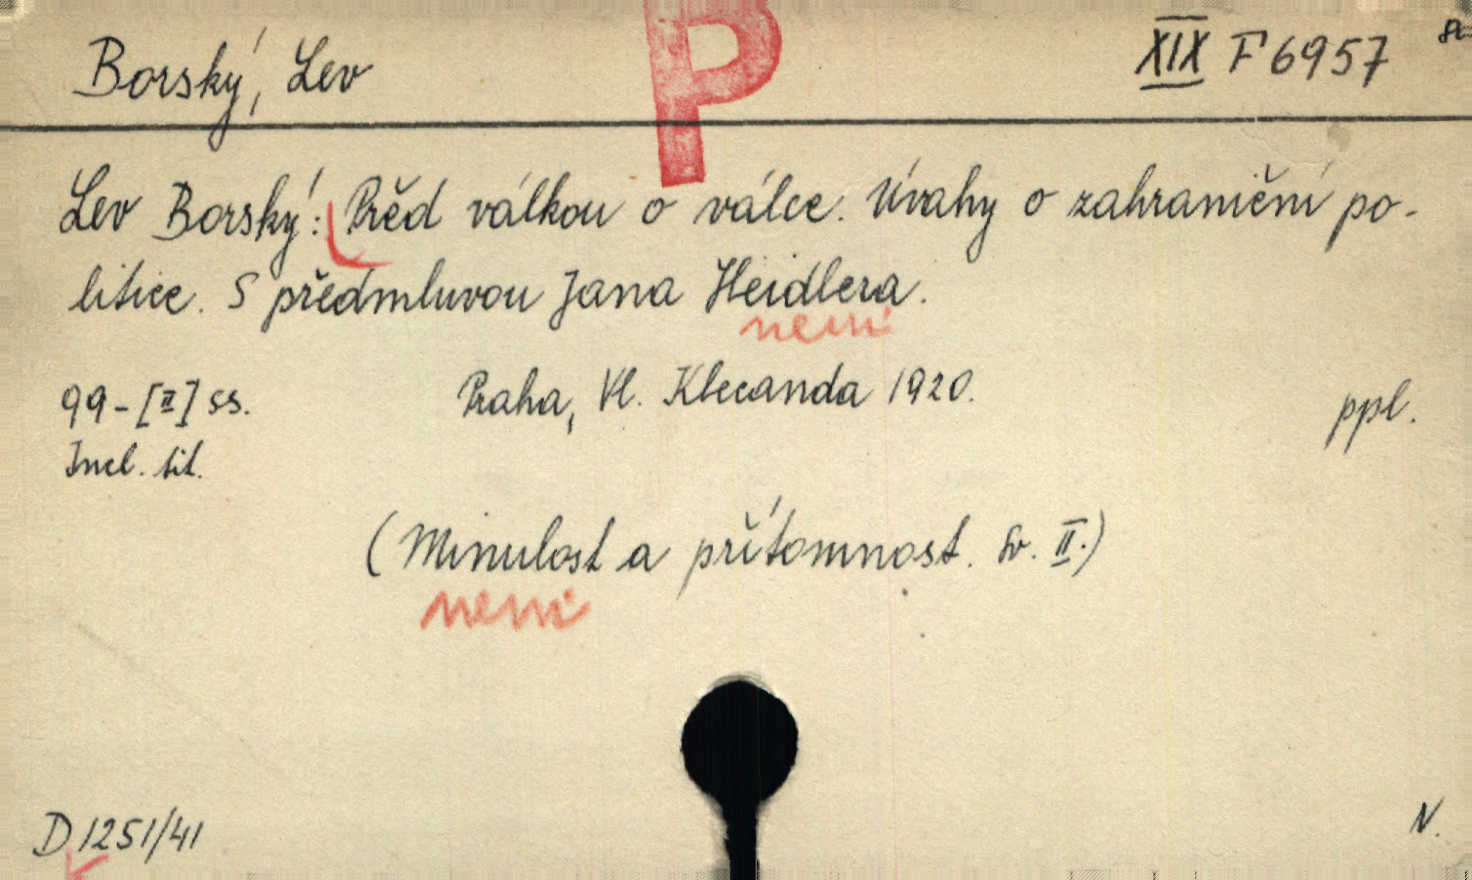 P
Borský, Lev
XIX F 6957
Lev Borský: Před válkou o válce. Úvahy o zahraniční po-
litice. S předmluvou Jana Heidlera.
není
99-[II] ss.
Praha, Vl. Klecanda 1920.
ppl.
Incl. tit.
(Minulost a přítomnost. Sv. II.)
není
D 1251/41
N.